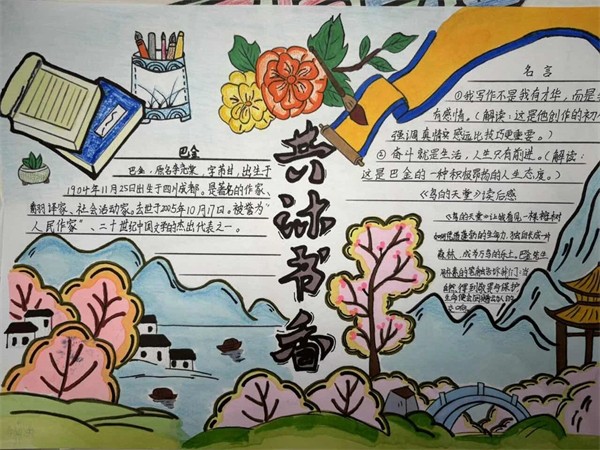 巴金
巴金,原名李尧棠,字芾甘,出生于
1904年11月25日出生于四川成都。是著名的作家、
翻译家、社会活动家。去世于2005年10月17日。被誉为“
人民作家”、二十世纪中国文学的杰出代表之一。
共沐书香
名言
①我写作不是我有才华,而是
有感情。(解读:这是他创作的初
强调真情实感远比技巧更重要。)
② 奋斗就是生活,人生只有前进。(解读:
这是巴金的一种积极昂扬的人生态度。)
《鸟的天堂》读后感
《鸟的天堂》让我看见一棵榕树
的生命力,独自长成一片
森林,成为万鸟的乐土。巴金先生
的笔触告诉我们:当
自然得到敬畏与保护
生命便会回馈动人的